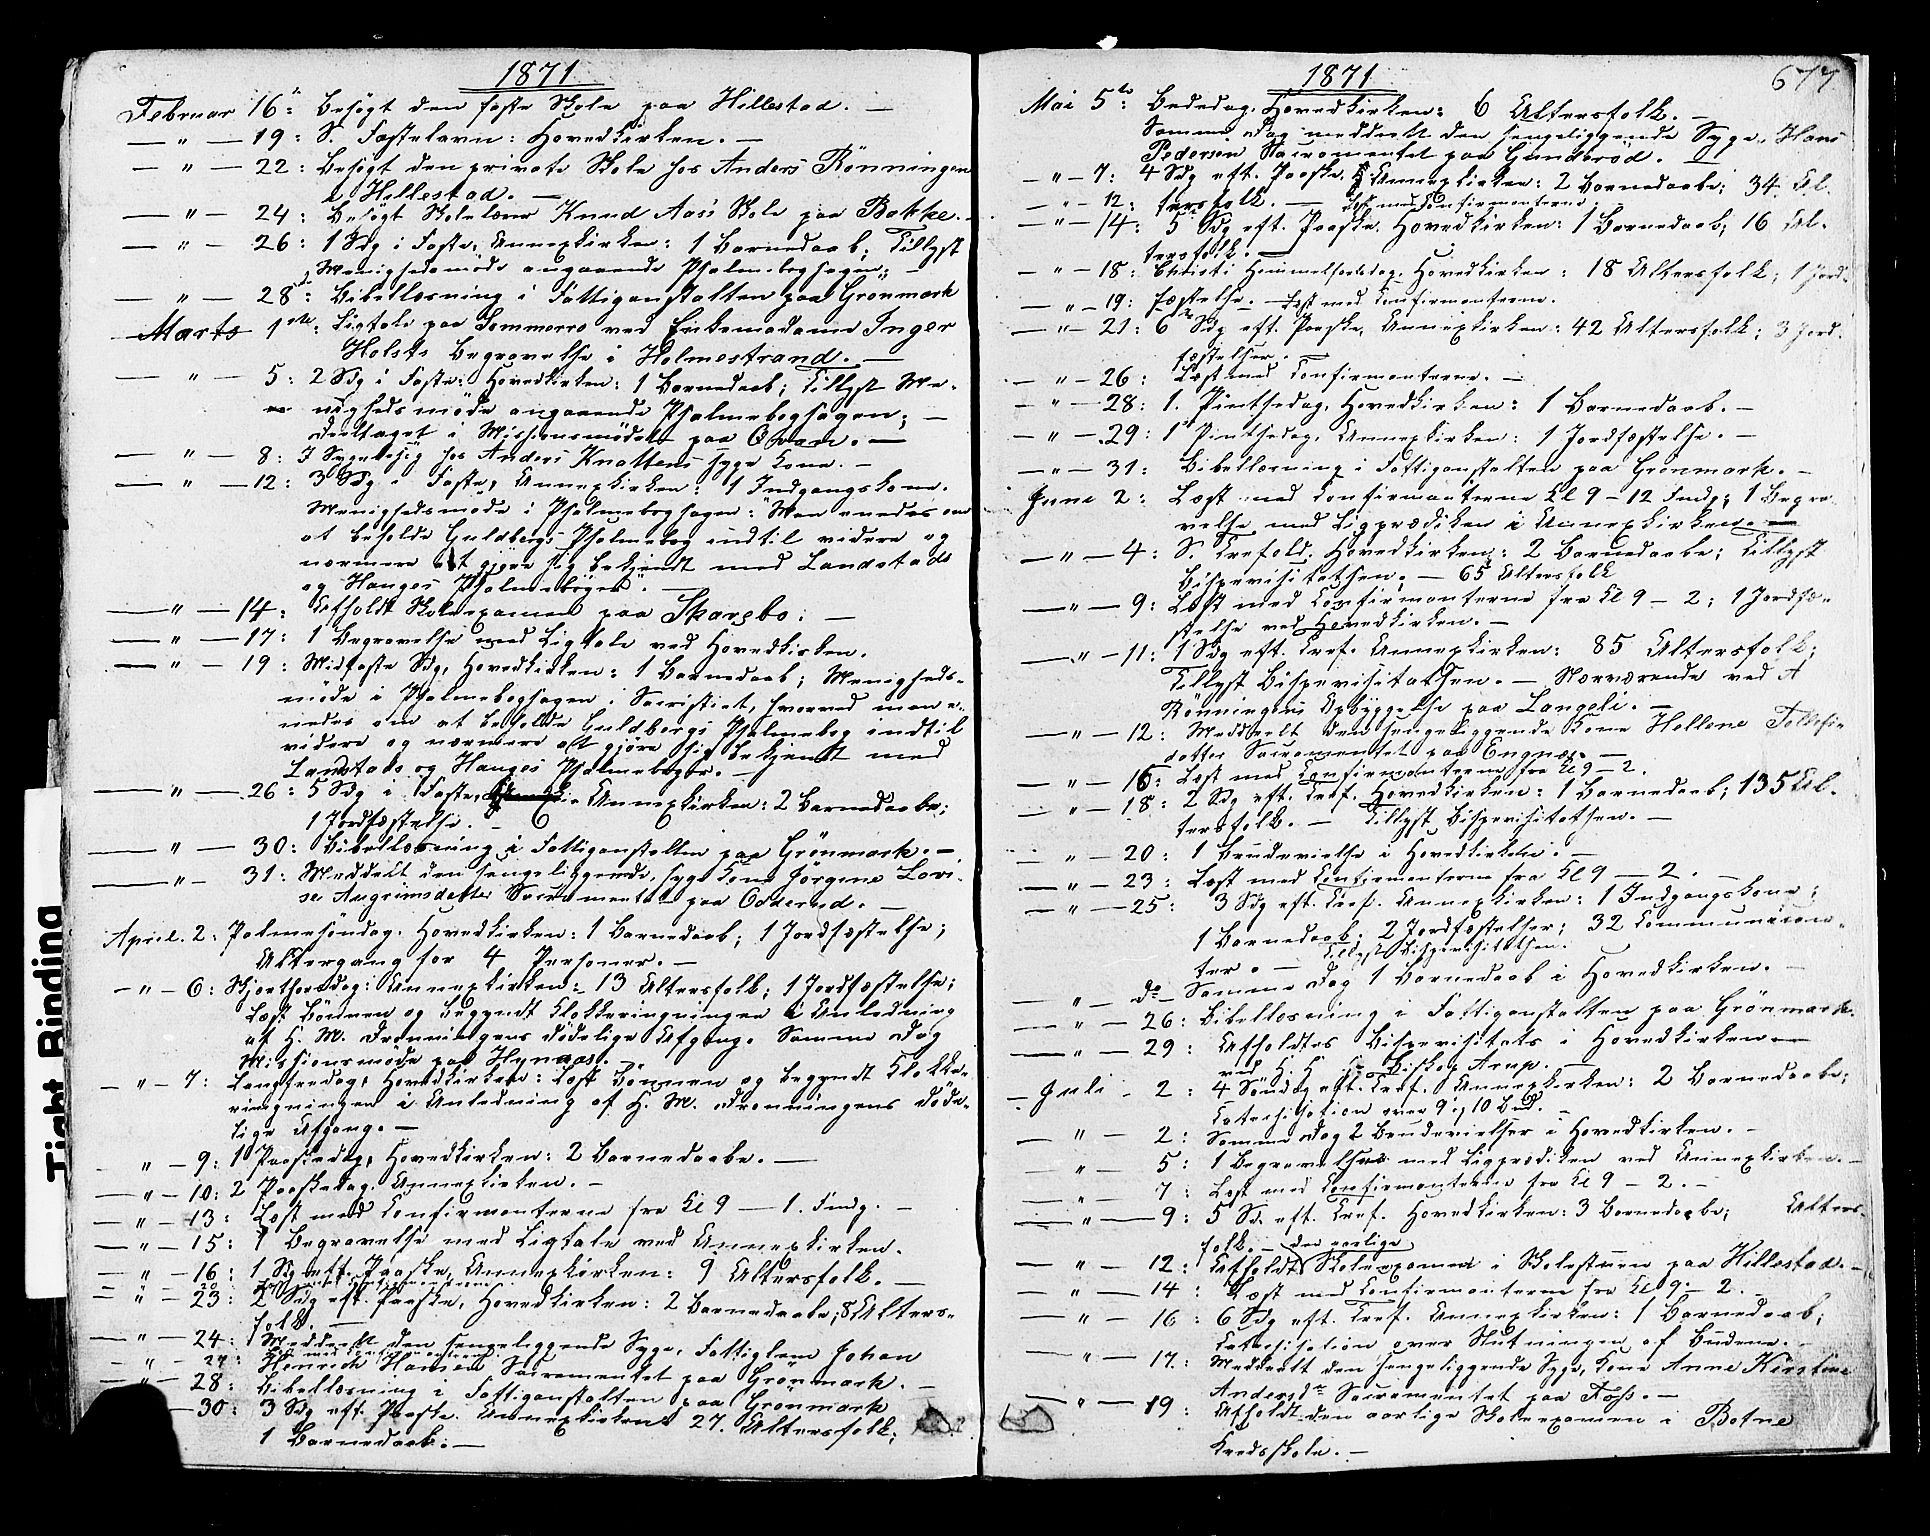 1871
Februar 16de: Besögt den faste Skole paa Hillestad. —
— " — 19: S. Fastelavn: Hovedkirken. —
— " — 22: Besögt den private Skole hos Anders Rönningen
i Hillestad. —
— " — 24: Besögt Skolelærer Knud Aas's Skole paa Bakke. —
— " — 26: 1 Sdg i Faste, Annexkirken: 1 Barnedaab; Tillyst
Menighedsmöde angaaende Psalmebogsagen; —
— " — 28de: Bibellæsning i Fattiganstalten paa Grönmark
Marts 1ste: Ligtale paa Sommerro ved Enkemadame Inger
Holsts Begravelse i Holmestrand. —
— " — 5: 2 Sdg i Faste: Hovedkirken: 1 Barnedaab; Tillyst Me-
nighedsmöde angaaende Psalmebogsagen; —
Deeltaget i Missionsmödet paa Qvam. —
— " — 8: I Sygebesög hos Anders Knattens syge Kone. —
— " — 12: 3 Sdg i Faste, Annexkirken: 1 Indgangskone.
Menighedsmöde i Psalmebogsagen: Man enedes om
at beholde Guldbergs Psalmebog indtil videre og
nærmere at gjöre sig bekjendt med Landstads
og Hauges Psalmebøger. —
— " — 14: Afholdt Skoleexamen paa Skarsbo: —
— " — 17: 1 Begravelse med Ligtale ved Hovedkirken.
— " — 19: Midfaste Sdg, Hovedkirken: 1 Barnedaab; Menigheds-
möde i Psalmebogsagen i Sacristiet, hvorved man e-
nedes om at beholde Guldbergs Psalmebog indtil
videre og nærmere at gjöre sig bekjendt med
Landstads og Hauges Psalmebøger. —
— " — 26: 5 Sdg i Faste, Annexkirken: 2 Barnedaabe;
1 Jordfæstelse. —
— " — 30: Bibellæsning i Fattiganstalten paa Grönmark. —
— " — 31: Meddelt den sengeliggende, syge Kone Jörgine Lovi-
se Asgrimsdatter Sacramentet paa Odderud. —
April. 2: Palmesöndag. Hovedkirken: 1 Barnedaab; 1 Jordfæstelse;
Altergang for 4 Personer. —
— " — 6: Skjærthorsdag: Annexkirken: 13 Altersfolk; 1 Jordfæstelse;
Læst Bönnen og begyndt Klokkeringningen i Anledning
af H. M. Dronningens dödelige Afgang. Samme Dag
Missionsmöde paa Hynaas. —
— " — 7: Langfredag, Hovedkirken: Læst Bönnen og begyndt Klokke-
ringningen i Anledning af H. M. Dronningens döde-
lige Afgang. —
" — 9: 1 Paaskedag, Hovedkirken: 2 Barnedaabe. —
— " — 10: 2 Paaskedag. Annexkirken. —
— " — 13: Læst med Confirmanterne fra Kl 9 — 1. Indg. —
— " — 15: 1 Begravelse med Ligtale ved Annexkirken.
— " — 16: 1 Sdg eft. Paaske, Annexkirken: 9 Altersfolk. —
— " — 20: Læst med Confirmanterne
— " — 23: 2 Sdg eft. Paaske, Hovedkirken: 2 Barnedaabe; 8 Alters-
folk. —
— " — 24: Meddeelt den sengeliggende Syge, Fattiglem Johan
— " — 27: Læst med Confirmanterne
Henrich Hansen Sacramentet paa Grönmark. —
" — 28: Bibellæsning i Fattiganstalten paa Grönmark
— 30: 3 Sdg eft. Paaske. Annexkirken: 27. Altersfolk;
1 Barnedaab: —
Tight Binding
1871
677
Mai 5te: Bededag. Hovedkirken: 6 Altersfolk. —
Samme Dag meddeelt den sengeliggende Syge, Hans
Pedersen Sacramentet paa Gunderöd. —
— " — 7: 4 Sdg eft. Paaske, Annexkirken: 2 Barnedaabe; 34 Al-
tersfolk. —
— " — 12: Læst med Confirmanterne.
— " — 14: 5 Sdg eft. Paaske. Hovedkirken: 1 Barnedaab; 16 Al-
tersfolk. —
— " — 18: Christi Himmelfartsdag. Hovedkirken: 18 Altersfolk; 1 Jord-
fæstelse. —
— " — 19: Læst med Confirmanterne.
— " — 21: 6 Sdg eft. Paaske, Annexkirken: 42 Altersfolk; 3 Jord-
fæstelser. —
— " — 26: Læst med Confirmanterne. —
— " — 28: 1. Pintsedag, Hovedkirken: 1 Barnedaab. —
— " — 29: Pintsedag, Annexkirken: 1 Jordfæstelse. —
— " — 31: Bibellæsning i Fattiganstalten paa Grönmark. —
Juni 2: Læst med Confirmanterne Kl 9 — 12 Indg; 1 Begra-
velse med Ligprædiken i Annexkirken. —
— " — 4: S. Trefold. Hovedkirken: 2 Barnedaabe; Tillyst
Bispevisitatsen. — 65 Altersfolk
— " — 9: Læst med Confirmanterne fra Kl 9 — 2; 1 Jordfæ-
stelse ved Hovedkirken. —
— " — 11: 1 Sdg eft. Tref. Annexkirken: 85 Altersfolk;
Tillyst Bispevisitatsen. — Nærværende ved A
Rönningens Opbyggelse paa Langeli. —
— " — 12: Meddeelt den sengeliggende Kone Hellene Tollefs-
datter Sacramentet paa Engnæs. —
— " — 16: Læst med Confirmanterne fra Kl 9 — 2.
— " — 18: 2 Sdg eft. Tref. Hovedkirken: 1 Barnedaab; 135 Al-
tersfolk. — Tillyst Bispevisitatsen. —
— " — 20: 1 Brudevielse i Hovedkirken. —
— " — 23: Læst med Confirmanterne fra Kl 9 — 2. —
— " — 25: 3 Sdg eft. Tref. Annexkirken: 1 Indgangskone;
1 Barnedaab; 2 Jordfæstelser; 32 Communican-
ter. — Tillyst Bispevisitatsen.
— " — do — Samme Dag 1 Barnedaab i Hovedkirken. —
— " — 26: Bibellæsning i Fattiganstalten paa Grönmark.
— " — 29: Afholdtes Bispevisitats i Hovedkirken —
ved H. H. Biskop Arup. —
— Juli — 2: 4 Söndag eft. Tref. Annexkirken: 2 Barnedaabe;
Catechisation over 9 og 10 Bud. —
— " — 2: Samme Dag 2 Brudevielser i Hovedkirken. —
" — 5: 1 Begravelse med Ligprædiken ved Annexkirken. —
— " — 7: Læst med Confirmanterne fra Kl 9 — 2. —
— " — 9: 5 Sd. eft. Tref. Hovedkirken: 3 Barnedaabe; Alters-
folk. —
— " — 12: Afholdt den aarlige Skoleexamen i Skolestuen paa Hillestad. —
— " — 14: Læst med Confirmanterne fra Kl 9 — 2. —
— " — 16: 6 Sdg eft. Tref. Annexkirken: 1 Barnedaab;
Catechisation over Slutningen af Budene. —
— " — 17: Meddeelt den sengeliggende Syge, Kone Anne Kirstine
Andersdr Sacramentet paa Foss. —
— " — 19: Afholdt den aarlige Skoleexamen i Botne
Kredsskole. —